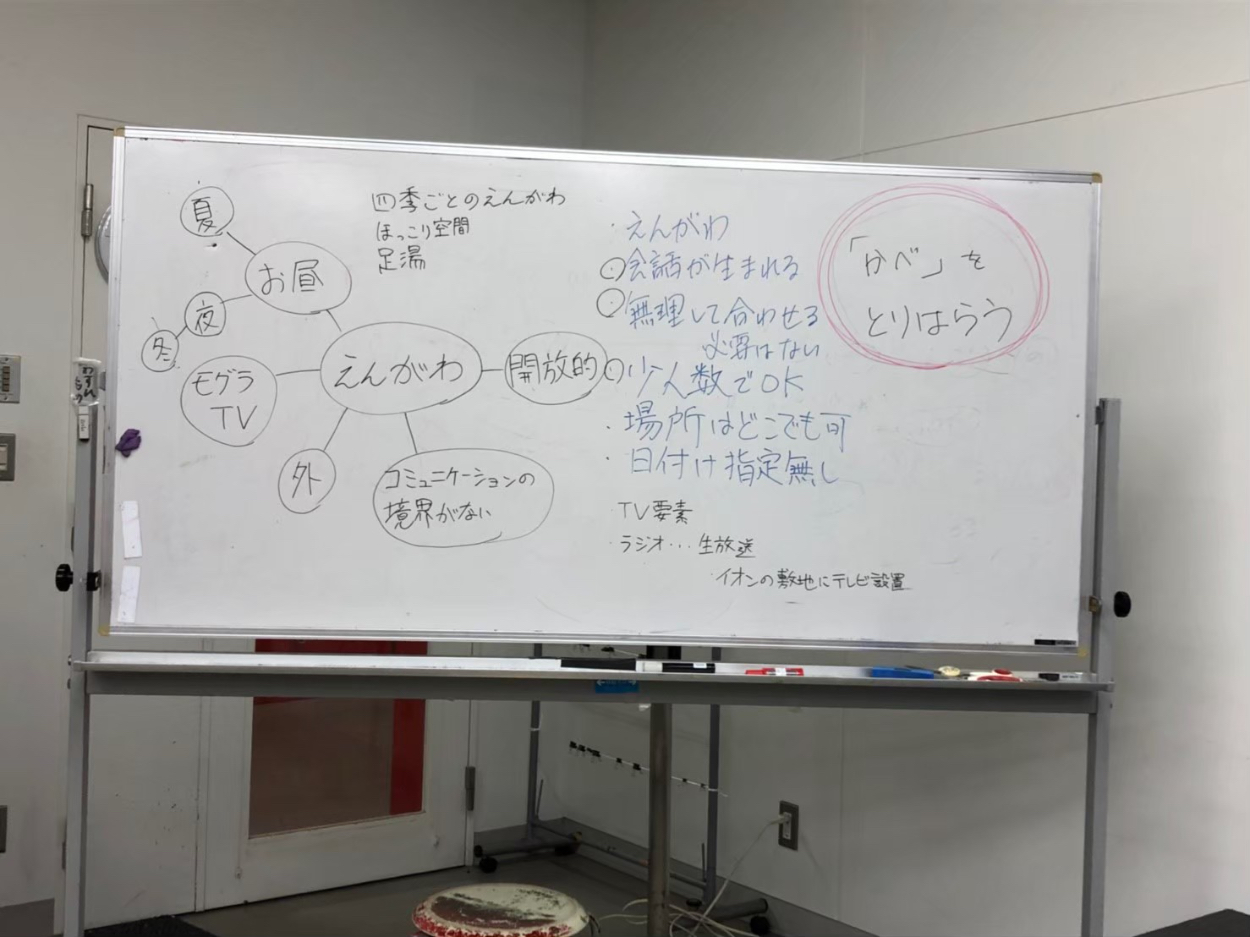 夏
お昼
夜
冬
モグラ
TV
えんがわ
開放的
外
コミュニケーションの
境界がない
四季ごとのえんがわ
ほっこり空間
足湯
・えんがわ
・会話が生まれる
・無理して合わせる
必要はない
・少人数でOK
・場所はどこでも可
・日付け指定無し
・TV要素
・ラジオ…生放送
・イオンの敷地にテレビ設置
「かべ」を
とりはらう